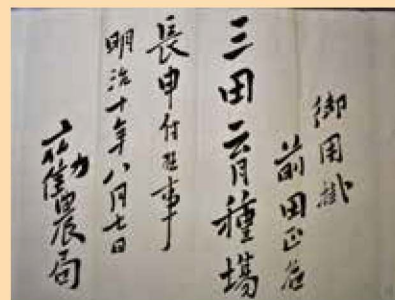 御用掛
前田正名
三田育種場
長申付候事
明治十年八月七日
勧農局